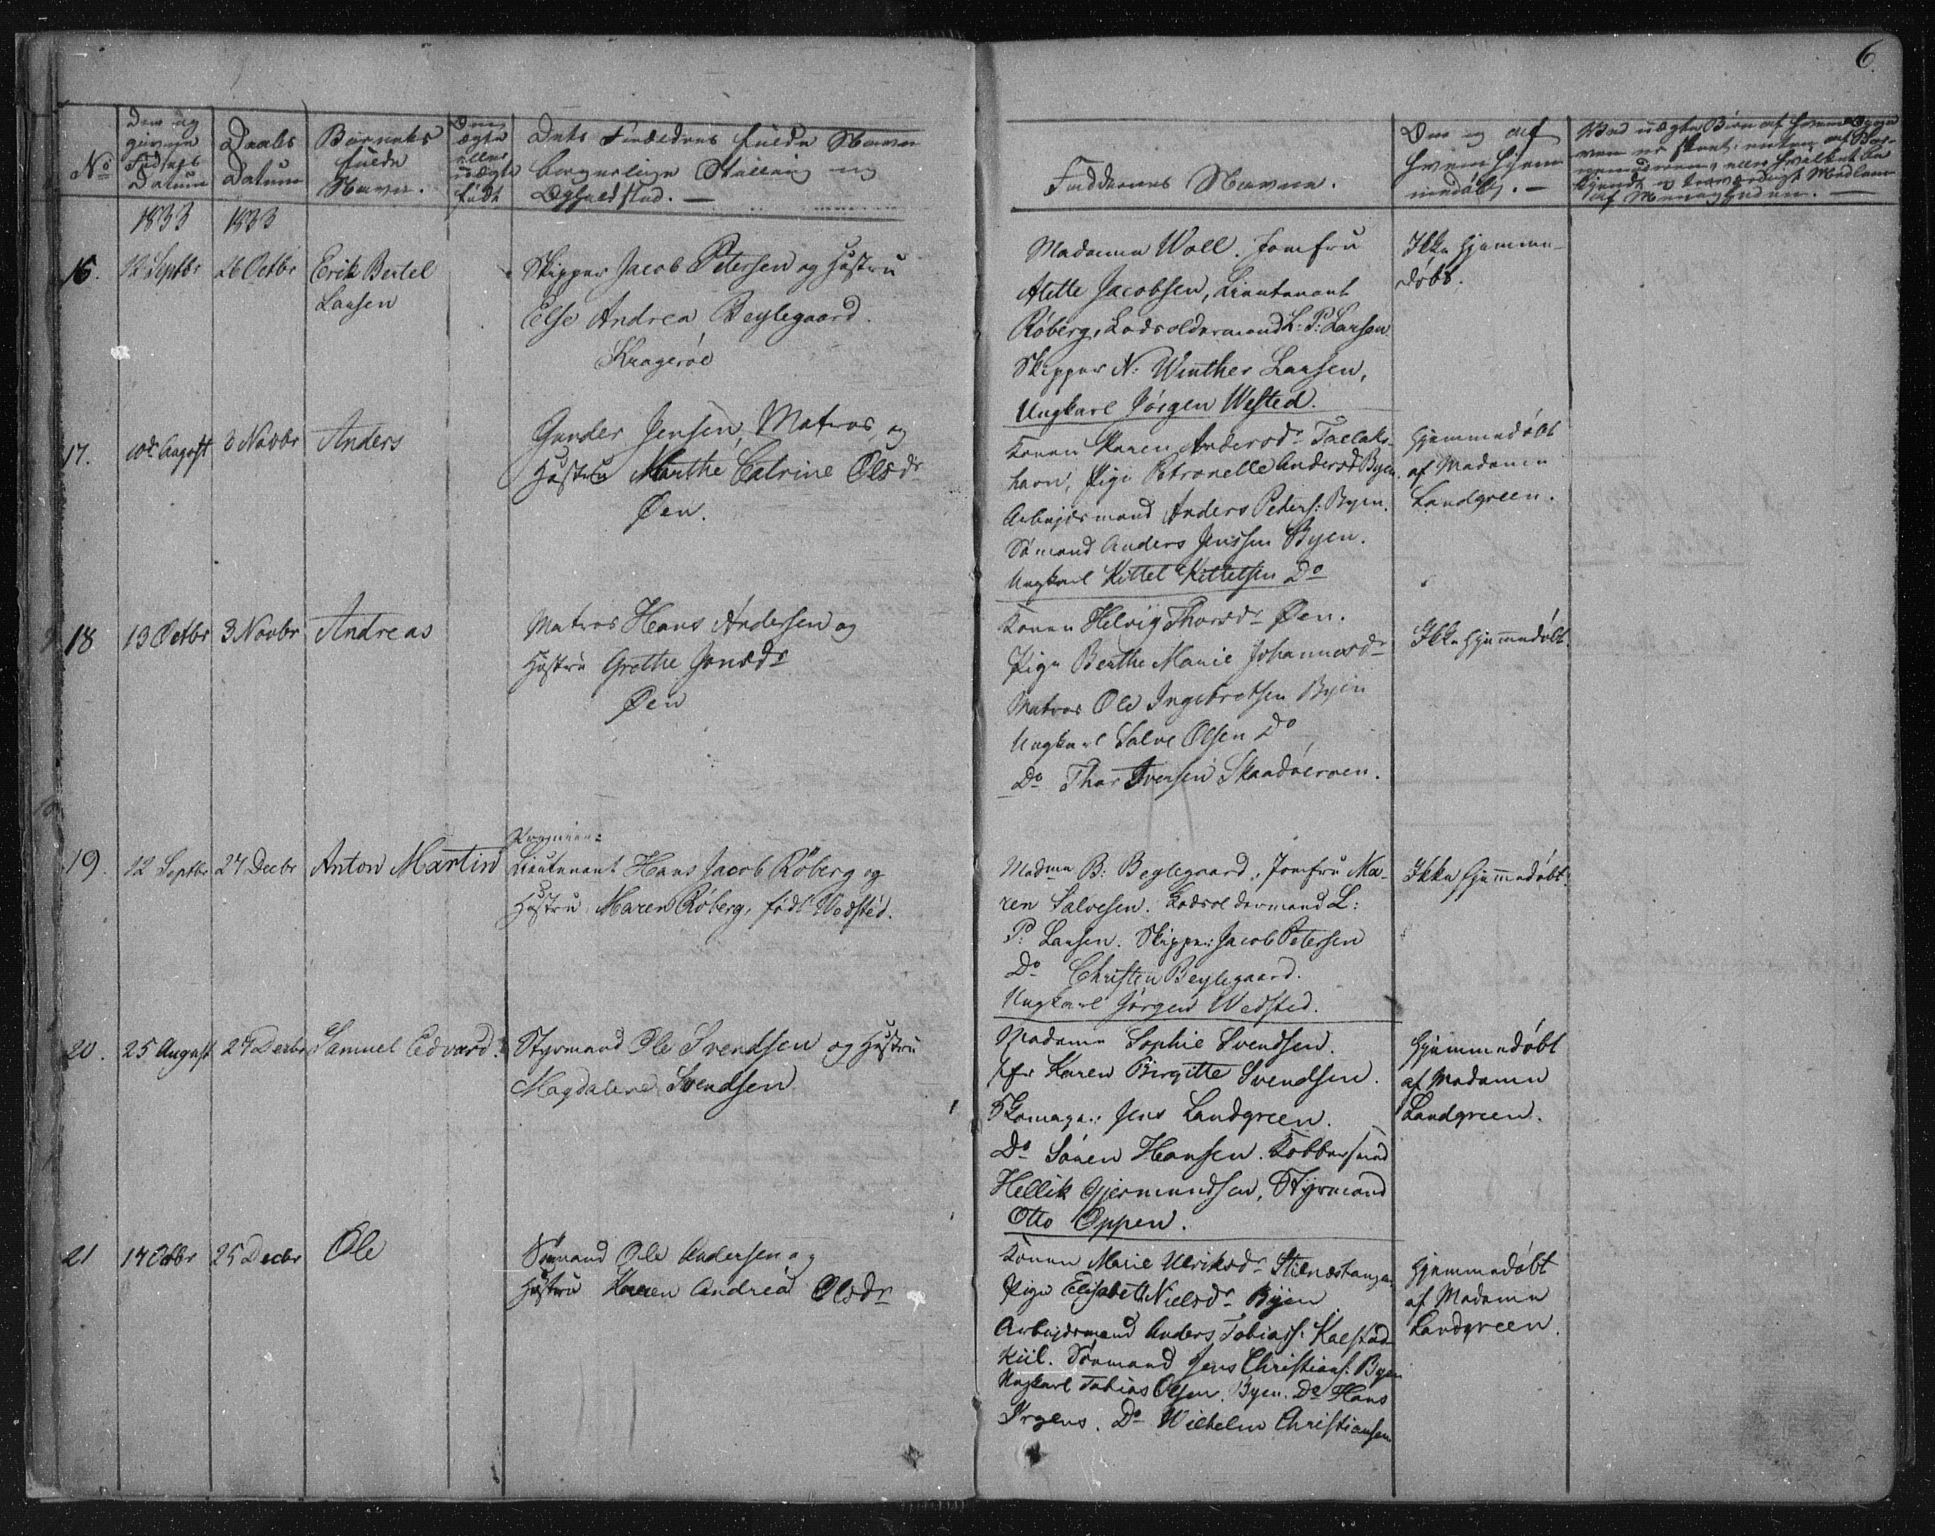 6.
No
Den og
givne
Fødsels
Datum
Daabs
Datum
Barnets
fulde
Navn.
Om
ægte
eller
uægte
født
Dets Forældres fulde Navn
borgerlige Stilling og
Opholdsted. —
Faddernes Navne.
Om og af
hvem hjem
medøbt. —
1833 1833
16. 12 Septbr 26 Octbr Erik Bertel
Larsen
Skipper Jacob Petersen og Hustru
Else Andrea Beylegaard.
Kragerøe
Madame Woll. Jomfru
Alette Jacobsen, Lieutenant
Röberg, Lodsoldermand L: P: Larsen
Skipper N: Winther Larsen,
Ungkarl Jörgen Wested.
Ikke hjemme-
døbt.
17. August 3 Novbr Anders
Gunder Jensen, Matros, og
Hustru Marthe Catrine Olsdr
Øen.
Konen Karen Andersdr
havn, Pige Petronelle Andersd Byen
Arbejdsmand Anders Peders: Byen.
Sömand Anders Jenssen Byen.
Ungkarl Kittel Kittelsen Do
Hjemmedøbt
af Madame
Landgreen.
18 13 Octbr 3 Novbr Andreas
Matros Hans Andersen og
Hustru Grethe Jonsdr
Øen
Konen Helvig Thorsdr Øen.
Pige Berthe Marie Johannesdr
Matros Ole Ingebretsen Byen
Ungkarl Salve Olsen Do
Do Thor Iversen Skaadøeroen.
Ikke hjemmedøbt
19. 12 Septbr 27 Decbr Anton Martin
Premier:
Lieutenant Hans Jacob Röberg og
Hustru Maren Röberg, født Wedsted.
Madme B: Beylegaard, Jomfru Ma-
ren Salvesen. Lodsoldermand L:
P: Larsen. Skipper: Jacob Petersen
Do Christen Beylegaard.
Ungkarl Jörgen Wedsted.
Ikke hjemmedøbt.
20. 25 August 27 Decbr Samuel Edvard.
Styrmand Ole Svendsen og Hustru
Magdalene Svendsen
Madame Sophie Svendsen.
Jfr Karen Birgitte Svendsen.
Skomager: Jens Landgreen.
Do Sören Hansen. Kobbersmed
Hellik Gjermundsen, Styrmand
Otto Oppen.
Hjemmedøbt
af Madame
Landgreen.
21 17 Octbr 25 Decbr Ole
Sömand Ole Andersen og
Hustru Karen Andrea Olsdr
Konen Marie Ulriksdr Stilnestangen
Pige Elisabeth Nielsdr Byen
Arbejdsmand Anders Tobiass: Kalstad-
Kiil. Sömand Jens Christians: Byen
Ungkarl Tobias Olsen. Byen. Do Hans
Irgens. Do Wilhelm Christiansen
Hjemmedøbt
af Madame
Landgreen.